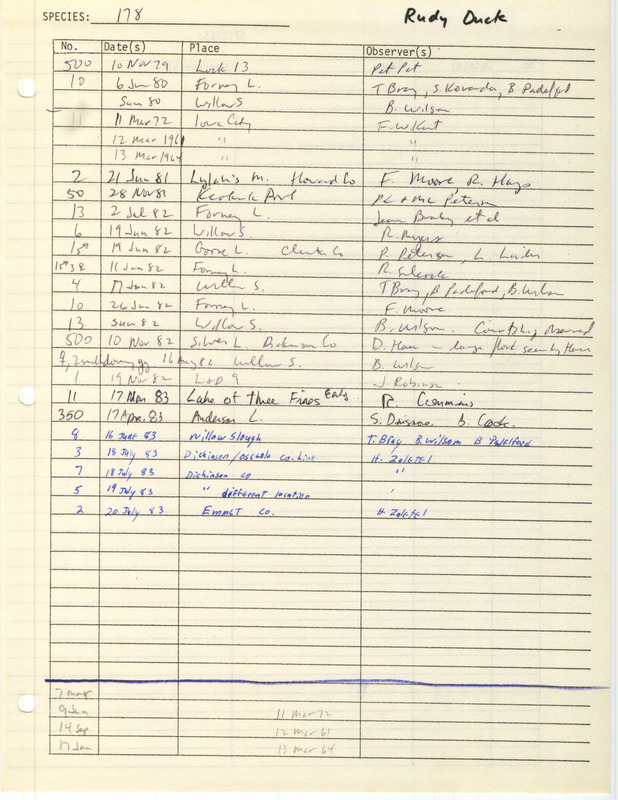 SPECIES: 178 Rudy Duck
No. Date(s) Place Observer(s)
500 10 Nov 79 Lock 13 Pet Pet
10 6 Jun 80 Forney L. T Bray, S. Kovanda, B Padelford
Sum 80 Willow S B. Wilson
11 Mar 72 Iowa City F. W. Kent
12 Mar 1961 " "
13 Mar 1964 " "
2 21 Jun 81 M. Howard Co F. Moore, R. Hays
50 28 Nov 81 Keokuk Pool PC + MC Petersen
13 2 Jul 82 Forney L. et al
6 19 Jun 82 Willow S. R. Myers
19 Jun 82 Goose L. Clinton Co P. Petersen, L. Linder
11 Jun 82 Forney L. R. Silcock
4 17 Jun 82 Willow S. T Bray, B Padelford, B. Wilson
10 26 Jun 82 Forney L. F. Moore
13 Sum 82 Willow S. B. Wilson - Courtship observed
500 10 Nov 82 Silver L Dickinson Co D. Harr - large flock seen by Harr
16 Aug 82 Willow S. B. Wilson
1 19 Nov 82 L+D 9 J. Robinson
11 17 Mar 83 Lake of Three Fires Early R. Cummins
350 17 Apr. 83 Anderson L. S. Dinsmore B. Cook
8 16 June 83 Willow Slough T. Bray B Wilson B Padelford
3 18 July 83 Dickinson/Osceola co. line H. Zaletel
7 18 July 83 Dickinson co "
5 19 July 83 " different location '
2 20 July 83 Emmet Co. H. Zaletel
7 Mar
9 Jan 11 Mar 72
14 Sep 12 Mar 61
17 Jan 13 Mar 64